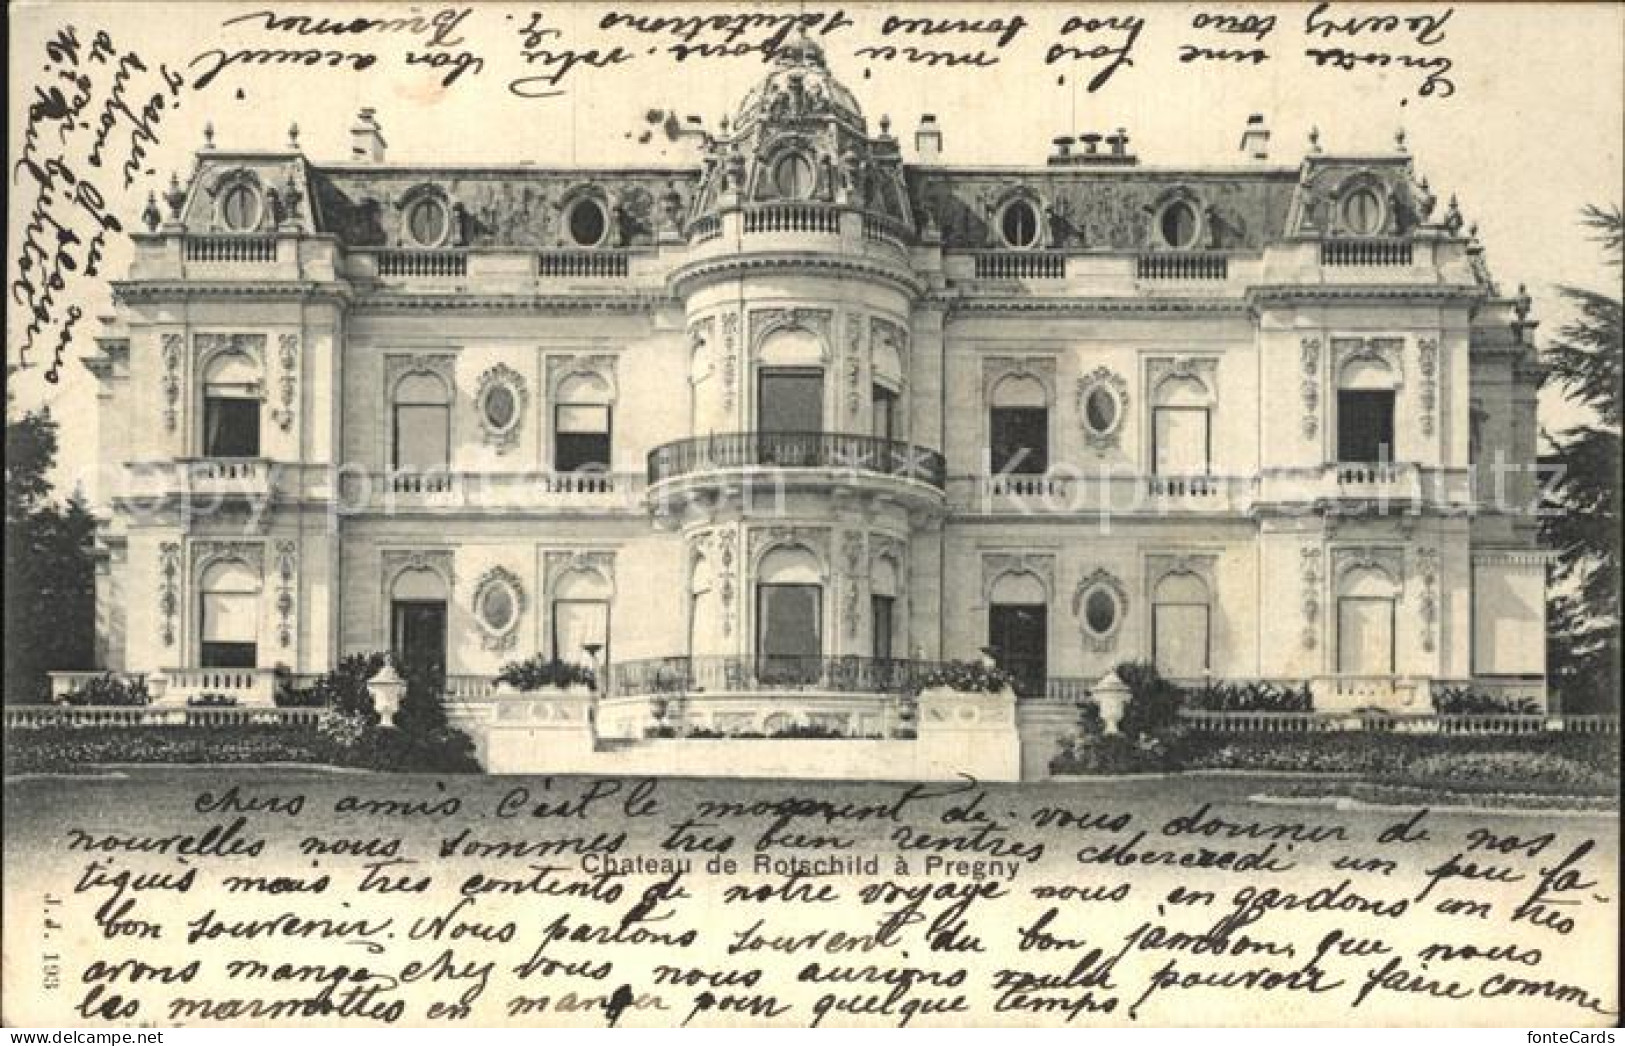 chers amis. c'est le moment de. vous donner de nos
nouvelles nous sommes tres bien rentres Mercredi un peu fa-
Chateau de Rotschild à Pregny
tigués mais tres contents de notre voyage nous en gardons un tres
bon souvenir. Nous parlons souvent du bon jambon, que nous
avons mangé chez vous nous aurions voulu pouvoir faire comme
les marmottes en manger pour quelque temps.
J.J. 193
Encore une fois merci pour. votre bon accueil
recevez tous nos bonnes salutations
J'espère que nous
aurons le plaisir
de voir bientôt
copyright * Kopierschutz
fonteCards